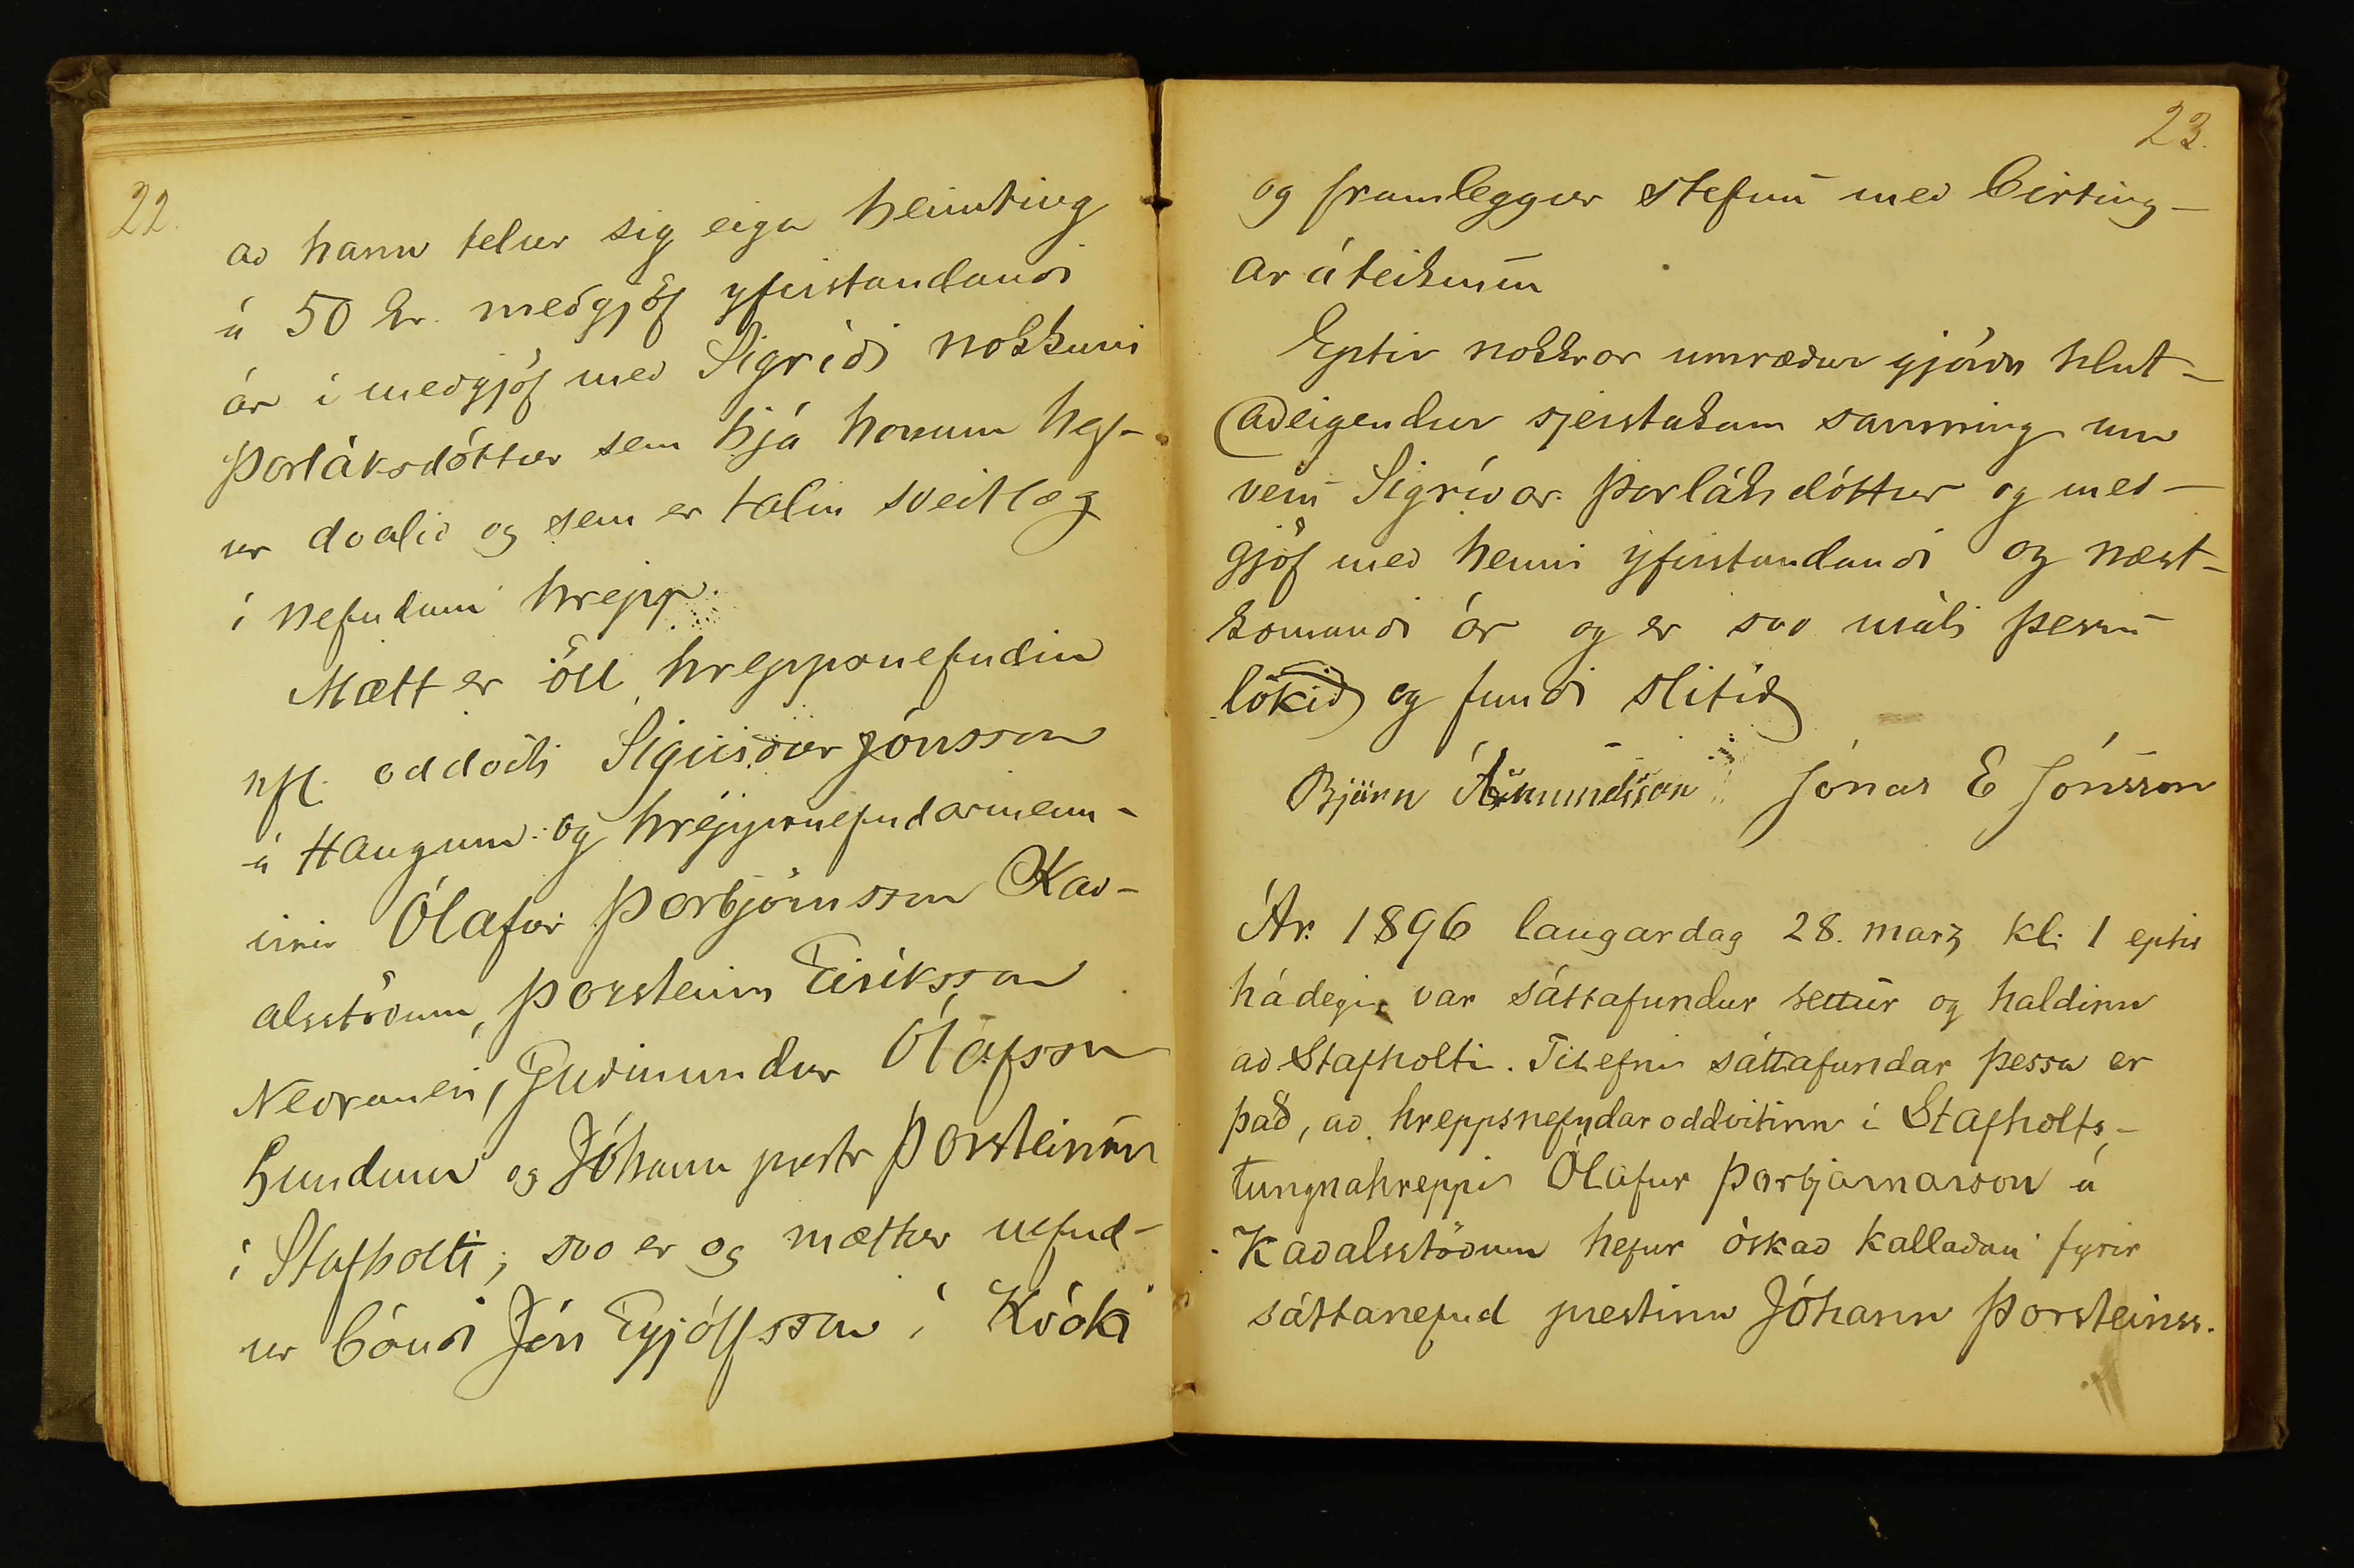 22.
að hann telur sig eiga heimting
á 50 kr. meðgjöf yfirstandandi
ár í meðgjöf með Sigríði nokkurri
Þorláksdóttur sem hjá honum hef-
ur dvalið og sem er talin sveitlæg
í nefndum hrepp.
Mætt er öll hreppsnefndin
nfl. oddviti Sigurður Jónsson
á Haugum og hreppsnefndarmenn-
irnir Ólafur Þorbjörnsson Kað-
alsstöðum, Þorsteinn Eiríksson
Neðranesi, Guðmundur Ólafsson
Lundum og Jóhann prestr Þorsteinss
í Stafholti; svo er og mættur nefnd-
ur bóndi Jón Eyjólfsson í Króki
23.
og framleggur stefnu með birting-
ar áteiknun
Eptir nokkrar umræður gjörðu hlut-
aðeigendur sjerstakan samning um
veru Sigríðar Þorláksdóttur og með-
gjöf með henni yfirstandandi og næst-
komandi ár og er svo máli þessu
lokið og fundi slitið
Björn Ásmundsson Jónas E Jónsson
Ár 1896 laugardag 28. marz kl. 1 eptir
hádegi var sáttafundur settur og haldinn
að Stafholti. Tilefni sáttafundar þessa er
það, að hreppsnefndaroddvitinn í Stafholts-
tungnahreppi Ólafur Þorbjarnarson á
Kaðalsstöðum hefur óskað kallaðan fyrir
sáttanefnd prestinn Jóhann Þorsteinss.